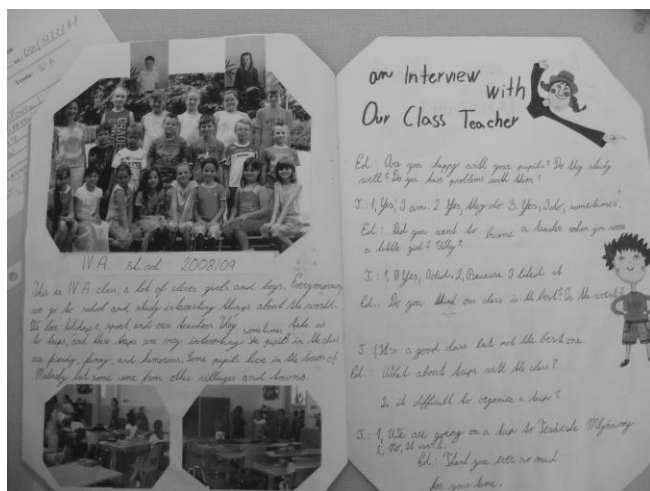 IV.A šk. rok 2008/09
This is IV.A class, a lot of clever girls and boys. Every morning
we go to school and study interesting things about the world.
We love holidays, sport and our teachers. They sometimes take us
to trips, and these trips are very interesting. The pupils in the class
are friendly, funny, and humorous. Some pupils live in the town of
but some come from other villages and towns.
an Interview
with
Our Class Teacher
Ed.: Are you happy with your pupils? Do they study
well? Do you have problems with them?
T.: 1, Yes, I am. 2 Yes, they do 3. Yes, I do, sometimes.
Ed.: Did you want to become a teacher when you were
a little girl? Why?
T.: 1, Yes, I did. 2, Because I liked it
Ed.: Do you think our class is the best? Or the worst?
T.: 1, It's a good class but not the best one.
Ed.: What about trips with the class?
Is it difficult to organise a trip?
T.: 1, We are going on a trip to
2, No, it isn't.
Ed.: Thank you very much
for your time.